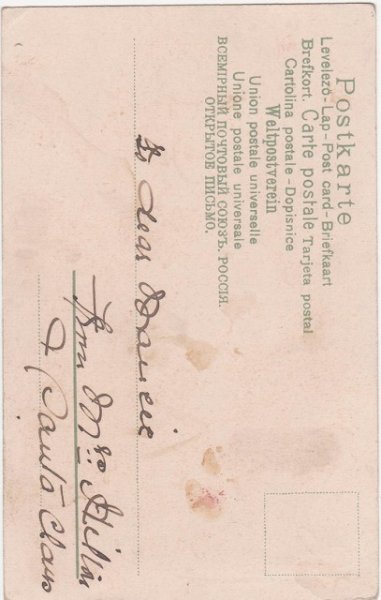 Postkarte
Levelező-Lap-Post card-Briefkaart
Brefkort. Carte postale Tarjeta postal
Cartolina postale-Dopisnice
Weltpostverein
Union postale universelle
Unione postale universale
ВСЕМІРНЫЙ ПОЧТОВЫЙ СОЮЗЪ. РОССІЯ.
ОТКРЫТОЕ ПИСЬМО.
To dear
From Mrs
& Santa Claus